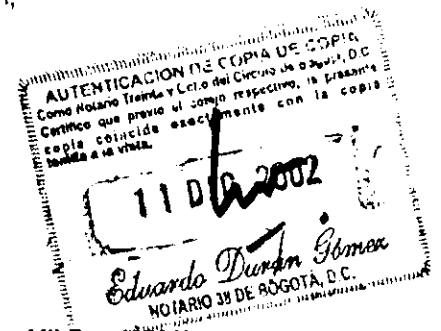 AUTENTICACION DE COPIA DE COPIA
Como Notario Treinta y Ocho del Circulo de Bogotá, D.C
Certifico que previo el cotejo respectivo, la presente
copia coincide exactamente con la copia
tenida a la vista.
11 DIC 2002
Eduardo Durán Gómez
NOTARIO 38 DE BOGOTÁ, D.C.